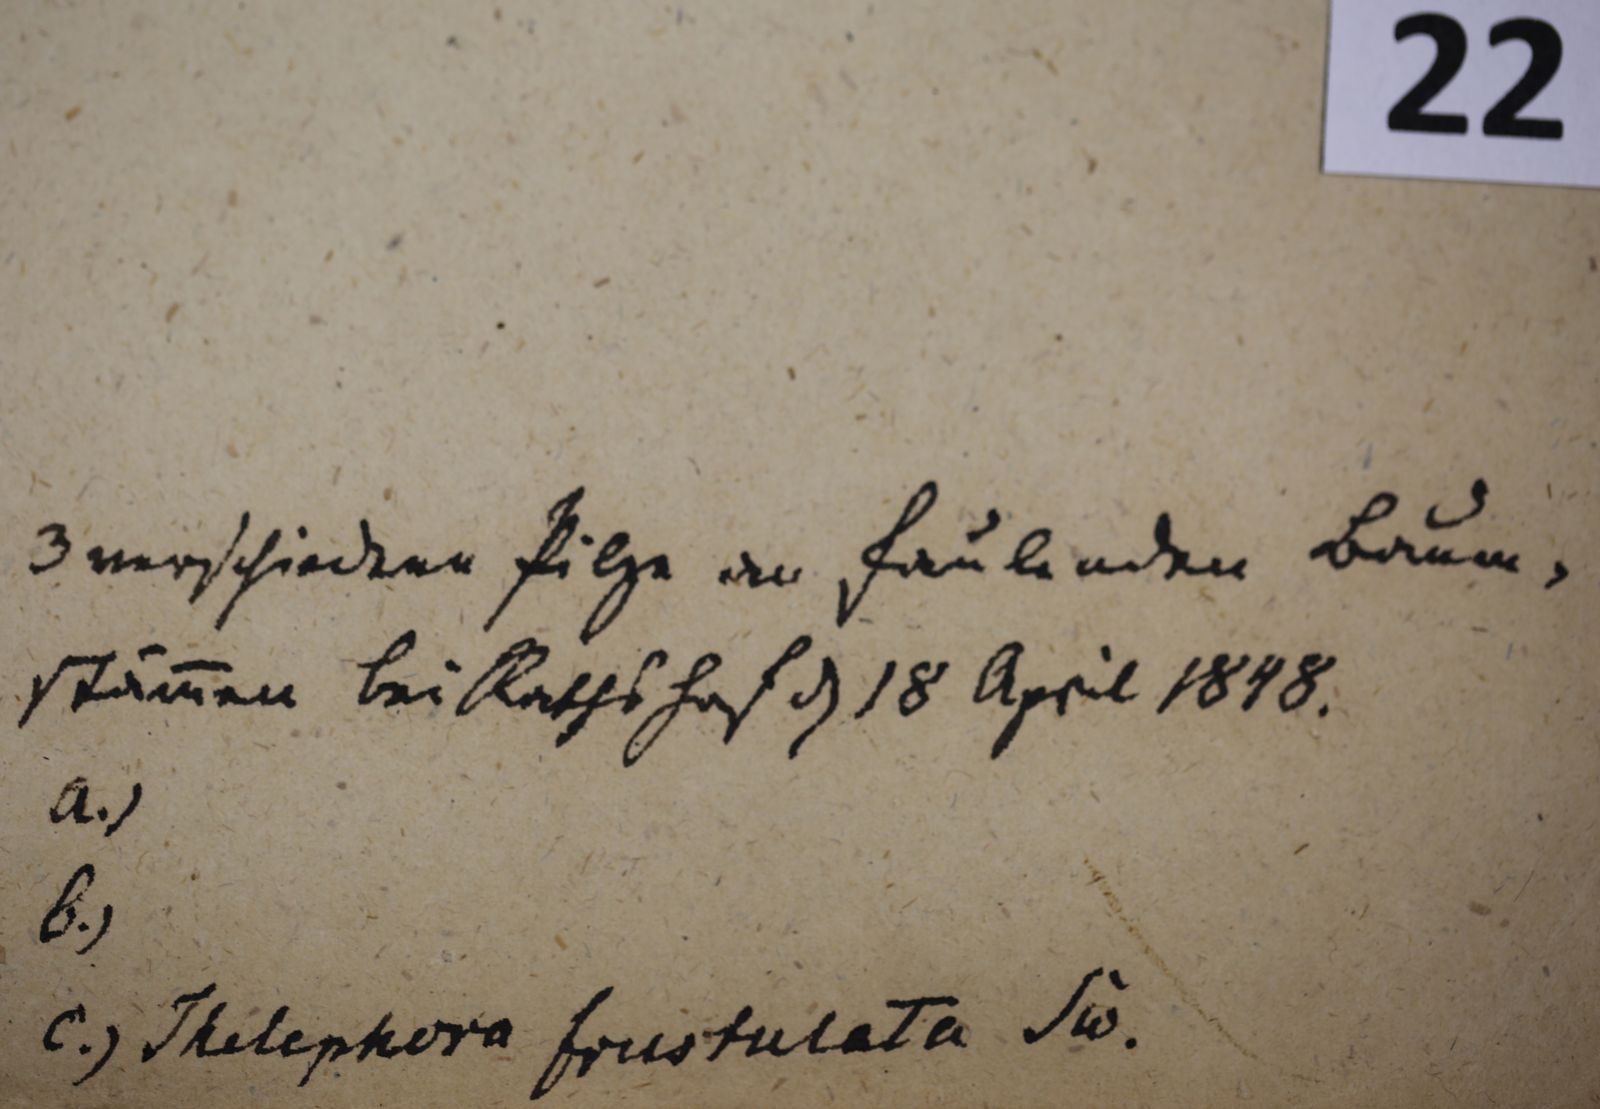 22
3 verschiedene Pilze an faulenden Baum-
stämen bei Rathshof d 18 April 1848.
a.)
b.)
c.) Thelephora frustulata Sw.